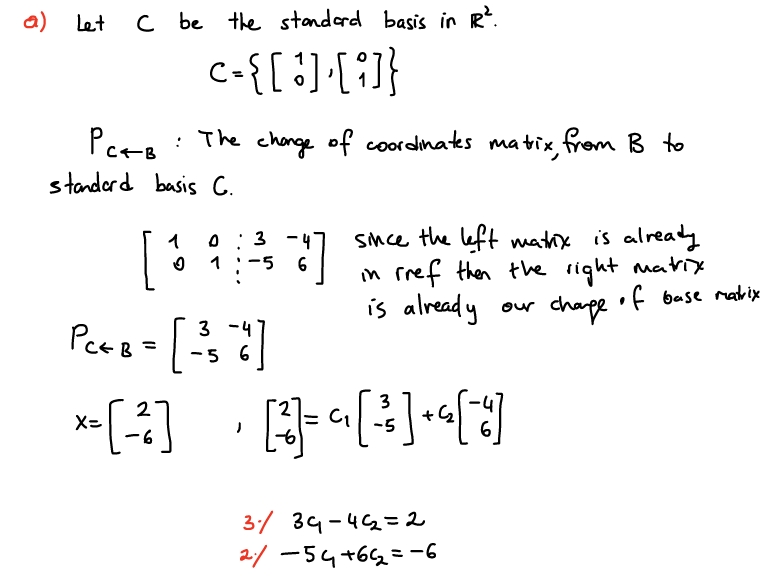 a) Let C be the standard basis in ℝ².
C = { [ 1 0 ] , [ 0 1 ] }
P C←B : The change of coordinates matrix, from B to
standard basis C.
[ 1 0 ⋮ 3 -4 ] since the left matrix is already
[ 0 1 ⋮ -5 6 ] in rref then the right matrix
is already our change of base matrix
P C←B = [ 3 -4 ; -5 6 ]
x = [ 2 -6 ] , [ 2 -6 ] = C₁ [ 3 -5 ] + C₂ [ -4 6 ]
3·/ 3C₁ - 4C₂ = 2
2·/ -5C₁ + 6C₂ = -6